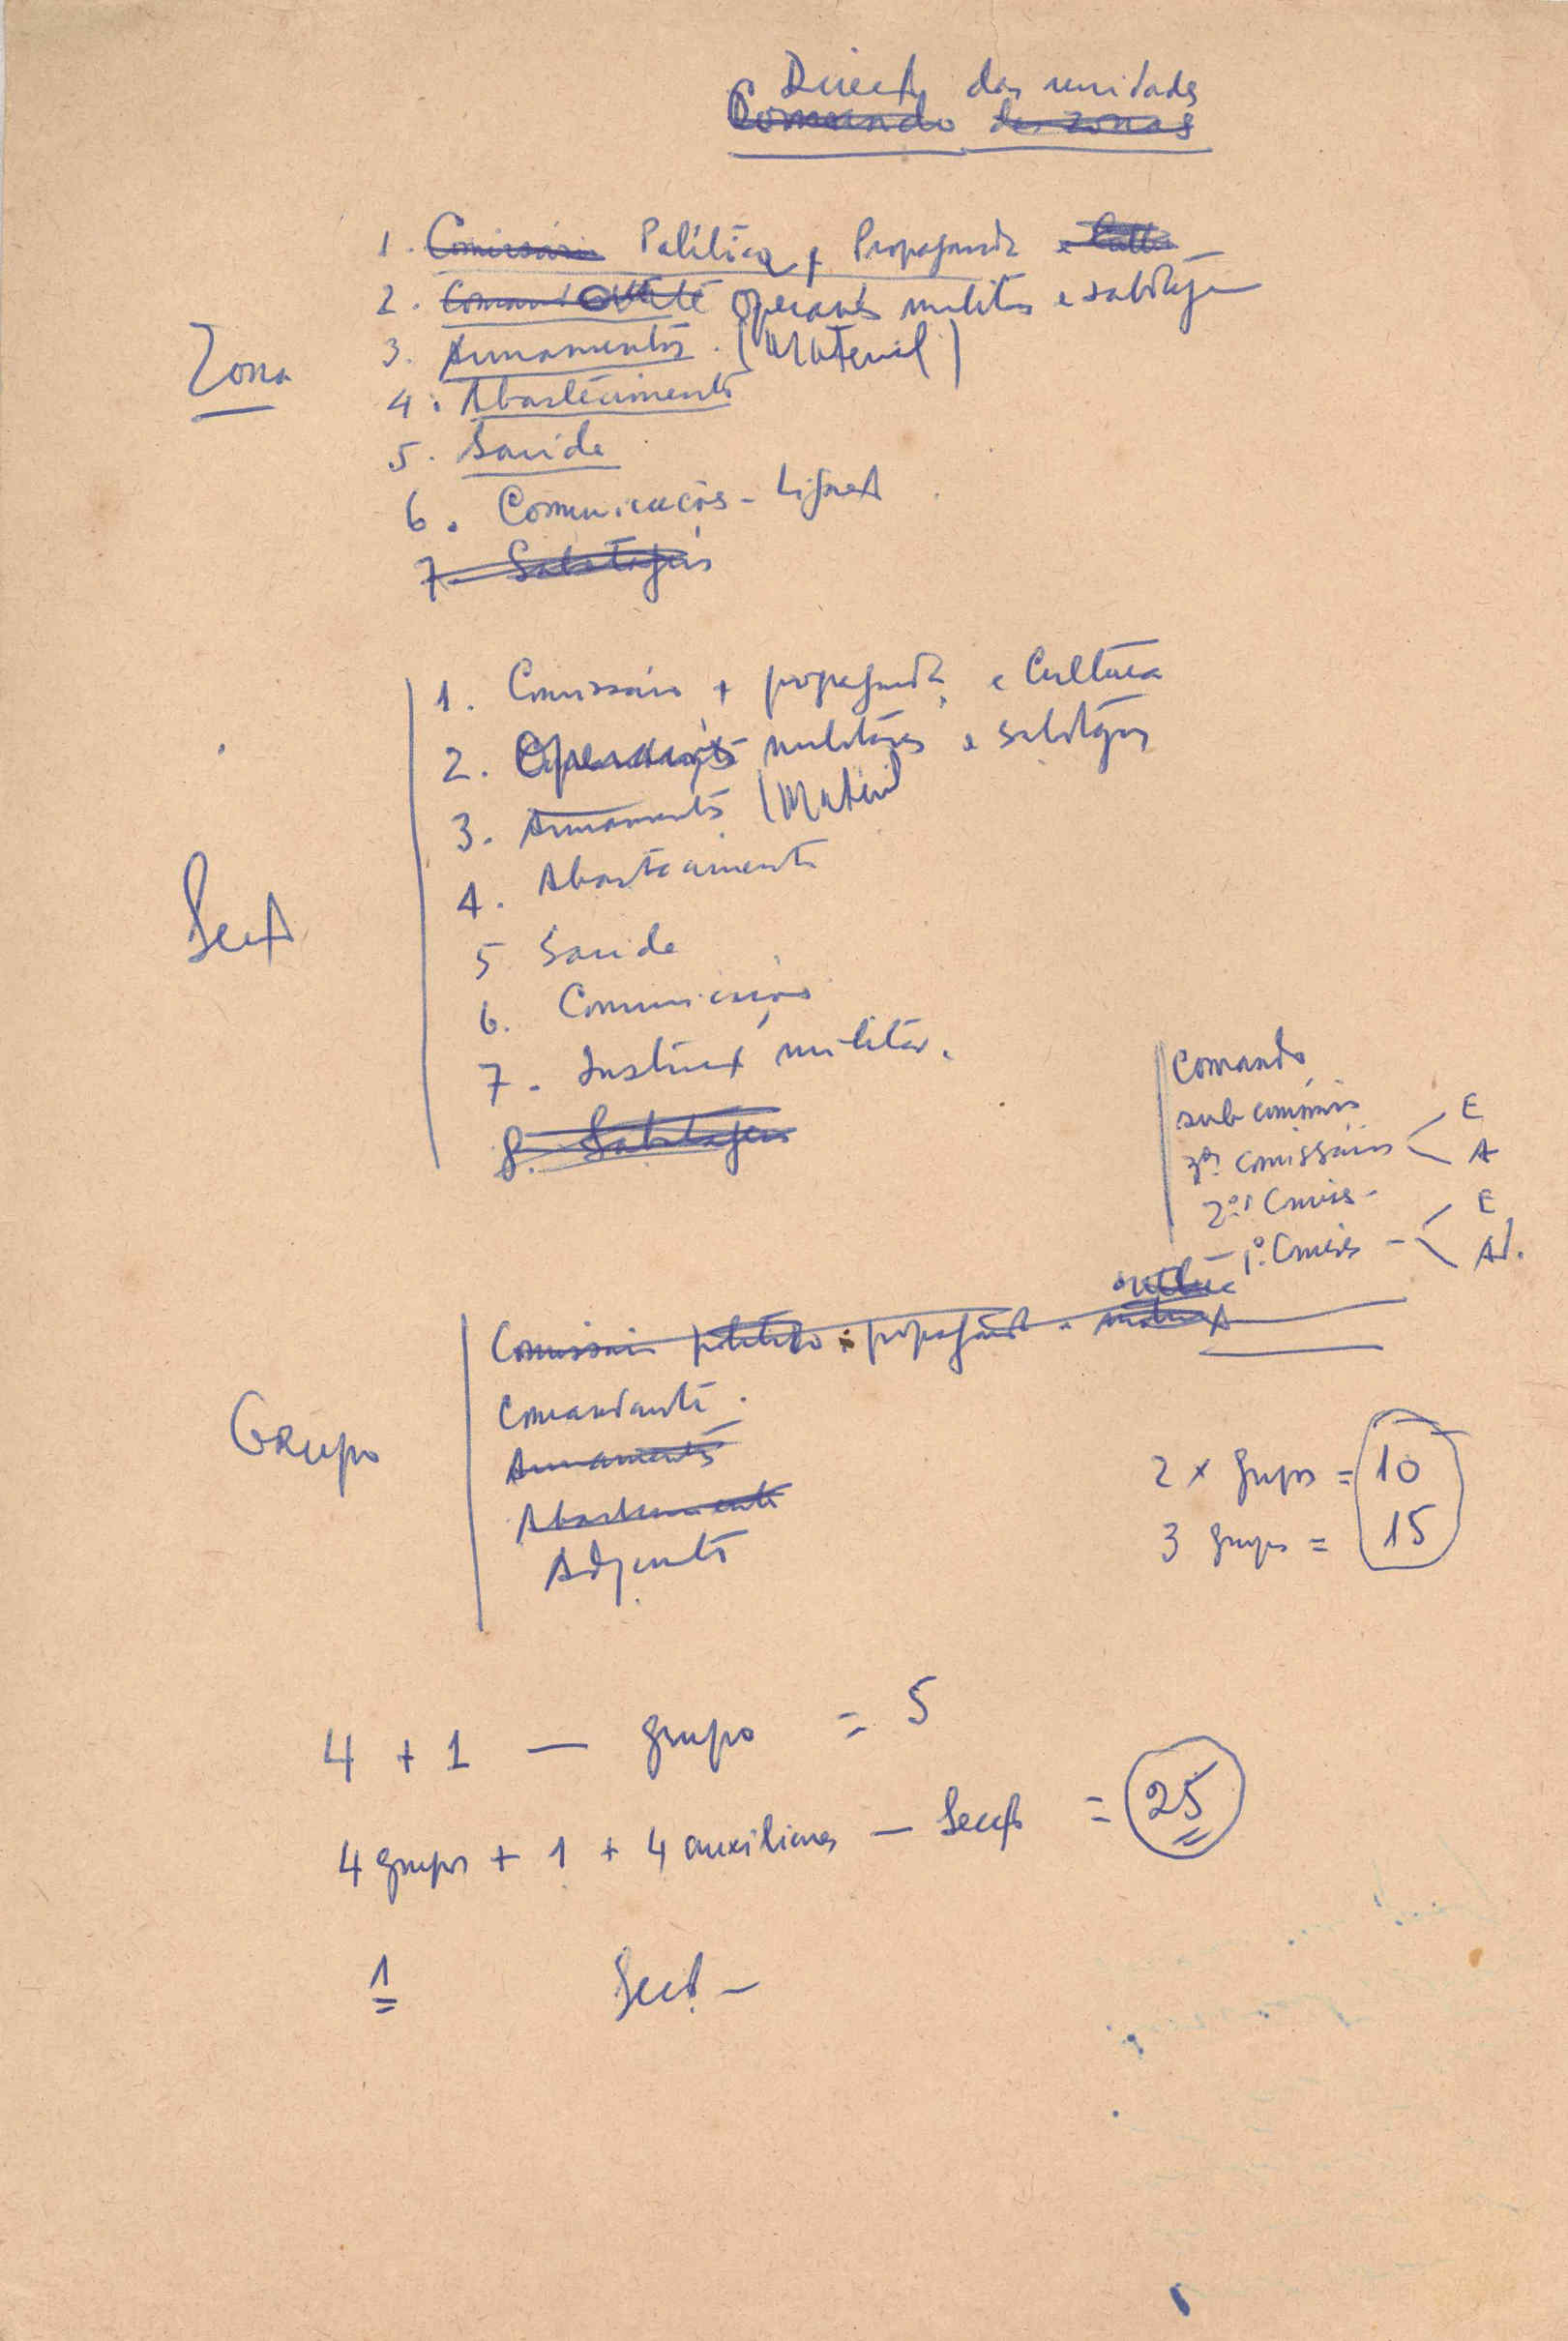 Direcç das unidades
Comando das zonas
Zona
1. Comissário Política + Propaganda e Cultu
2. Comand operações milita e sabotagem
3. Armamento. (Material)
4. Abastecimento
5. Saúde
6. Comunicações - Ligaç
7. Sabotagens
Secç
1. Comissário + propaganda e Cultura
2. Operações militares e sabotagens
3. Armamento (Material
4. Abastecimento
5 Saúde
6. Comunicações
7. Instruç militar.
8. Sabotagem
Comando
sub comissário
3os comissários < E A
2os Comis -
- 1º. Comis - < E Ad.
Grupo
Comissário político e propaganda e
Comandante.
Armamento
Abastecimento
Adjunto
2 x grupos = 10
3 grupos = 15
4 + 1 — grupo = 5
4 grupos + 1 + 4 auxiliares — Secç = 25
1 Secç -